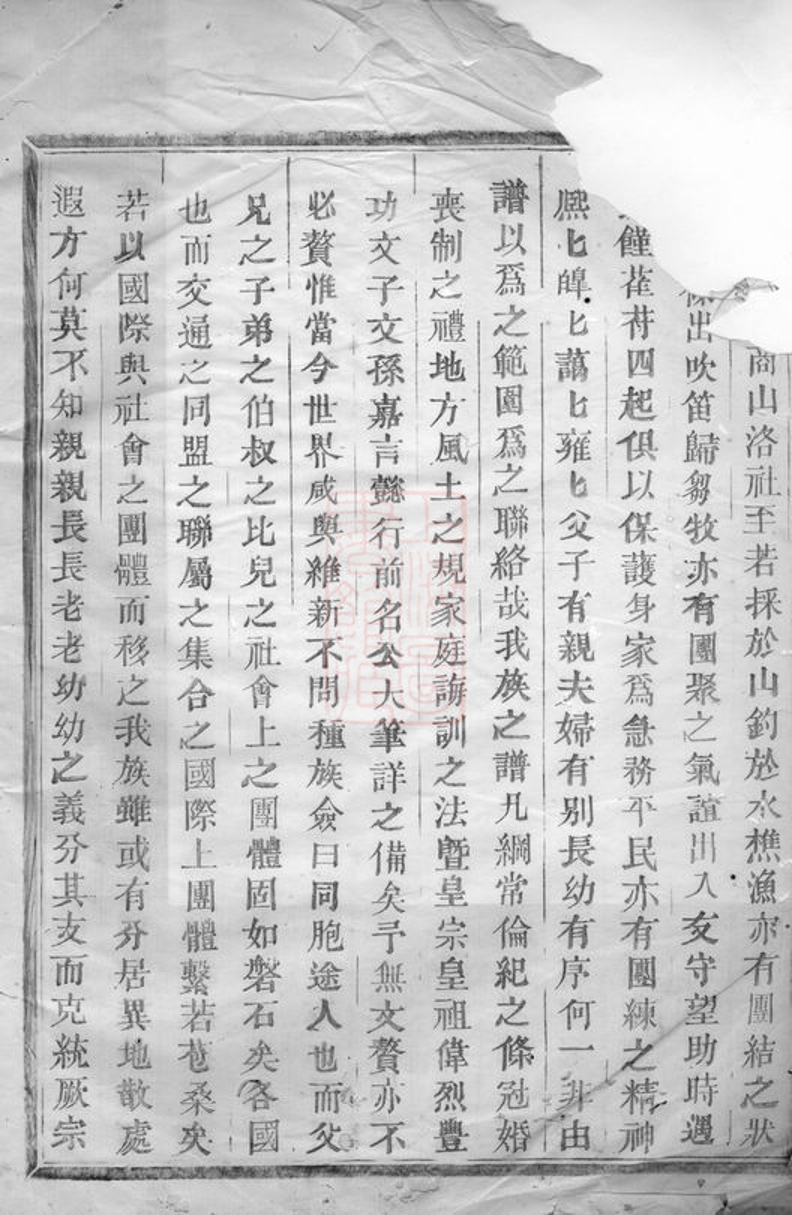 商山洛社至若採於山釣於水樵漁亦有團結之狀
出吹笛歸芻牧亦有團聚之氣誼出入友守望助時遇
饉萑苻四起俱以保護身家爲急務平民亦有團練之精神
熈匕皥匕藹匕雍匕父子有親夫婦有别長幼有序何一非由
譜以爲之範圍爲之聯絡哉我族之譜凡綱常倫紀之條冠婚
喪制之禮地方風土之規家庭誨訓之法曁皇宗皇祖偉烈豐
功文子文孫嘉言懿行前名公大筆詳之備矣予無文贅亦不
必贅惟當今世界咸與維新不問種族僉曰同胞途人也而父
兄之子弟之伯叔之比兒之社會上之團體固如磐石矣各國
也而交通之同盟之聯屬之集合之國際上團體繫若苞桑矣
若以國際與社會之團體而移之我族雖或有分居異地散處
遐方何莫不知親親長長老老幼幼之義分其支而克統厥宗